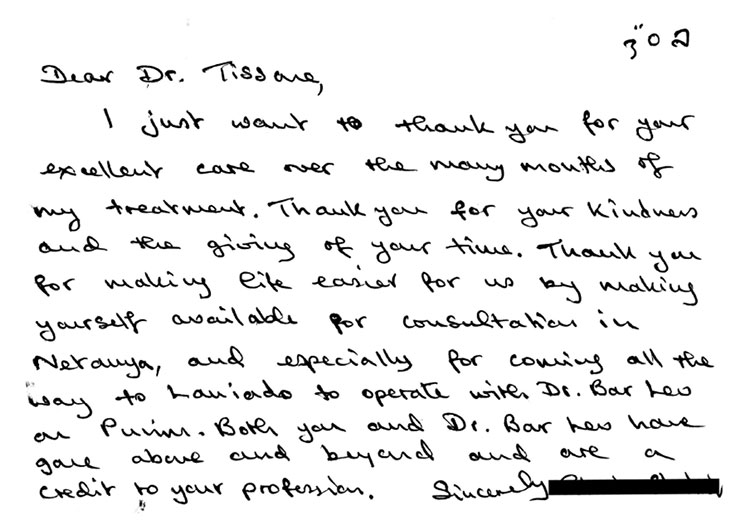 בס"ד
Dear Dr. Tissone,
I just want to thank you for your
excellent care over the many months of
my treatment. Thank you for your kindness
and the giving of your time. Thank you
for making life easier for us by making
yourself available for consultation in
Netanya, and especially for coming all the
way to Laniado to operate with Dr. Bar Lev
on Purim. Both you and Dr. Bar Lev have
gone above and beyond and are a
credit to your profession. Sincerely